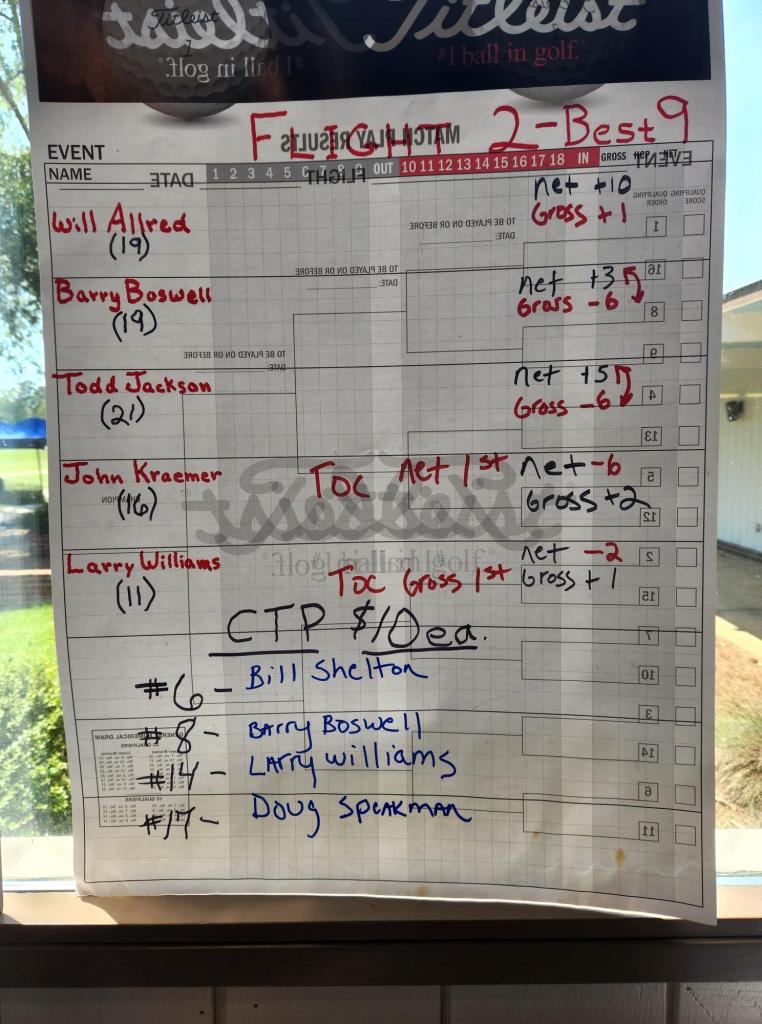 Titleist
#1 ball in golf.
FLIGHT 2-Best 9
MATCH PLAY RESULTS
EVENT
EVENT
NAME
DATE
1 2 3 4 5 6 7 8 9 OUT 10 11 12 13 14 15 16 17 18 IN GROSS HCP NET
FLIGHT
QUALIFYING ORDER
QUALIFYING SCORE
Will Allred
(19)
net +10
Gross +1
TO BE PLAYED ON OR BEFORE
DATE:
1
16
TO BE PLAYED ON OR BEFORE
DATE:
Barry Boswell
(19)
net +3
Gross -6
8
9
TO BE PLAYED ON OR BEFORE
DATE:
Todd Jackson
(21)
net +5
Gross -6
4
13
John Kraemer
(16)
TOC net 1st
net -6
Gross +2
CHAMPION
5
12
Titleist
#1 ball in golf.
Larry Williams
(11)
TOC Gross 1st
net -2
Gross +1
2
15
CTP $10 ea.
7
#6 - Bill Shelton
10
3
#8 - Barry Boswell
14
#14 - Larry Williams
6
#17 - Doug Speakman
11